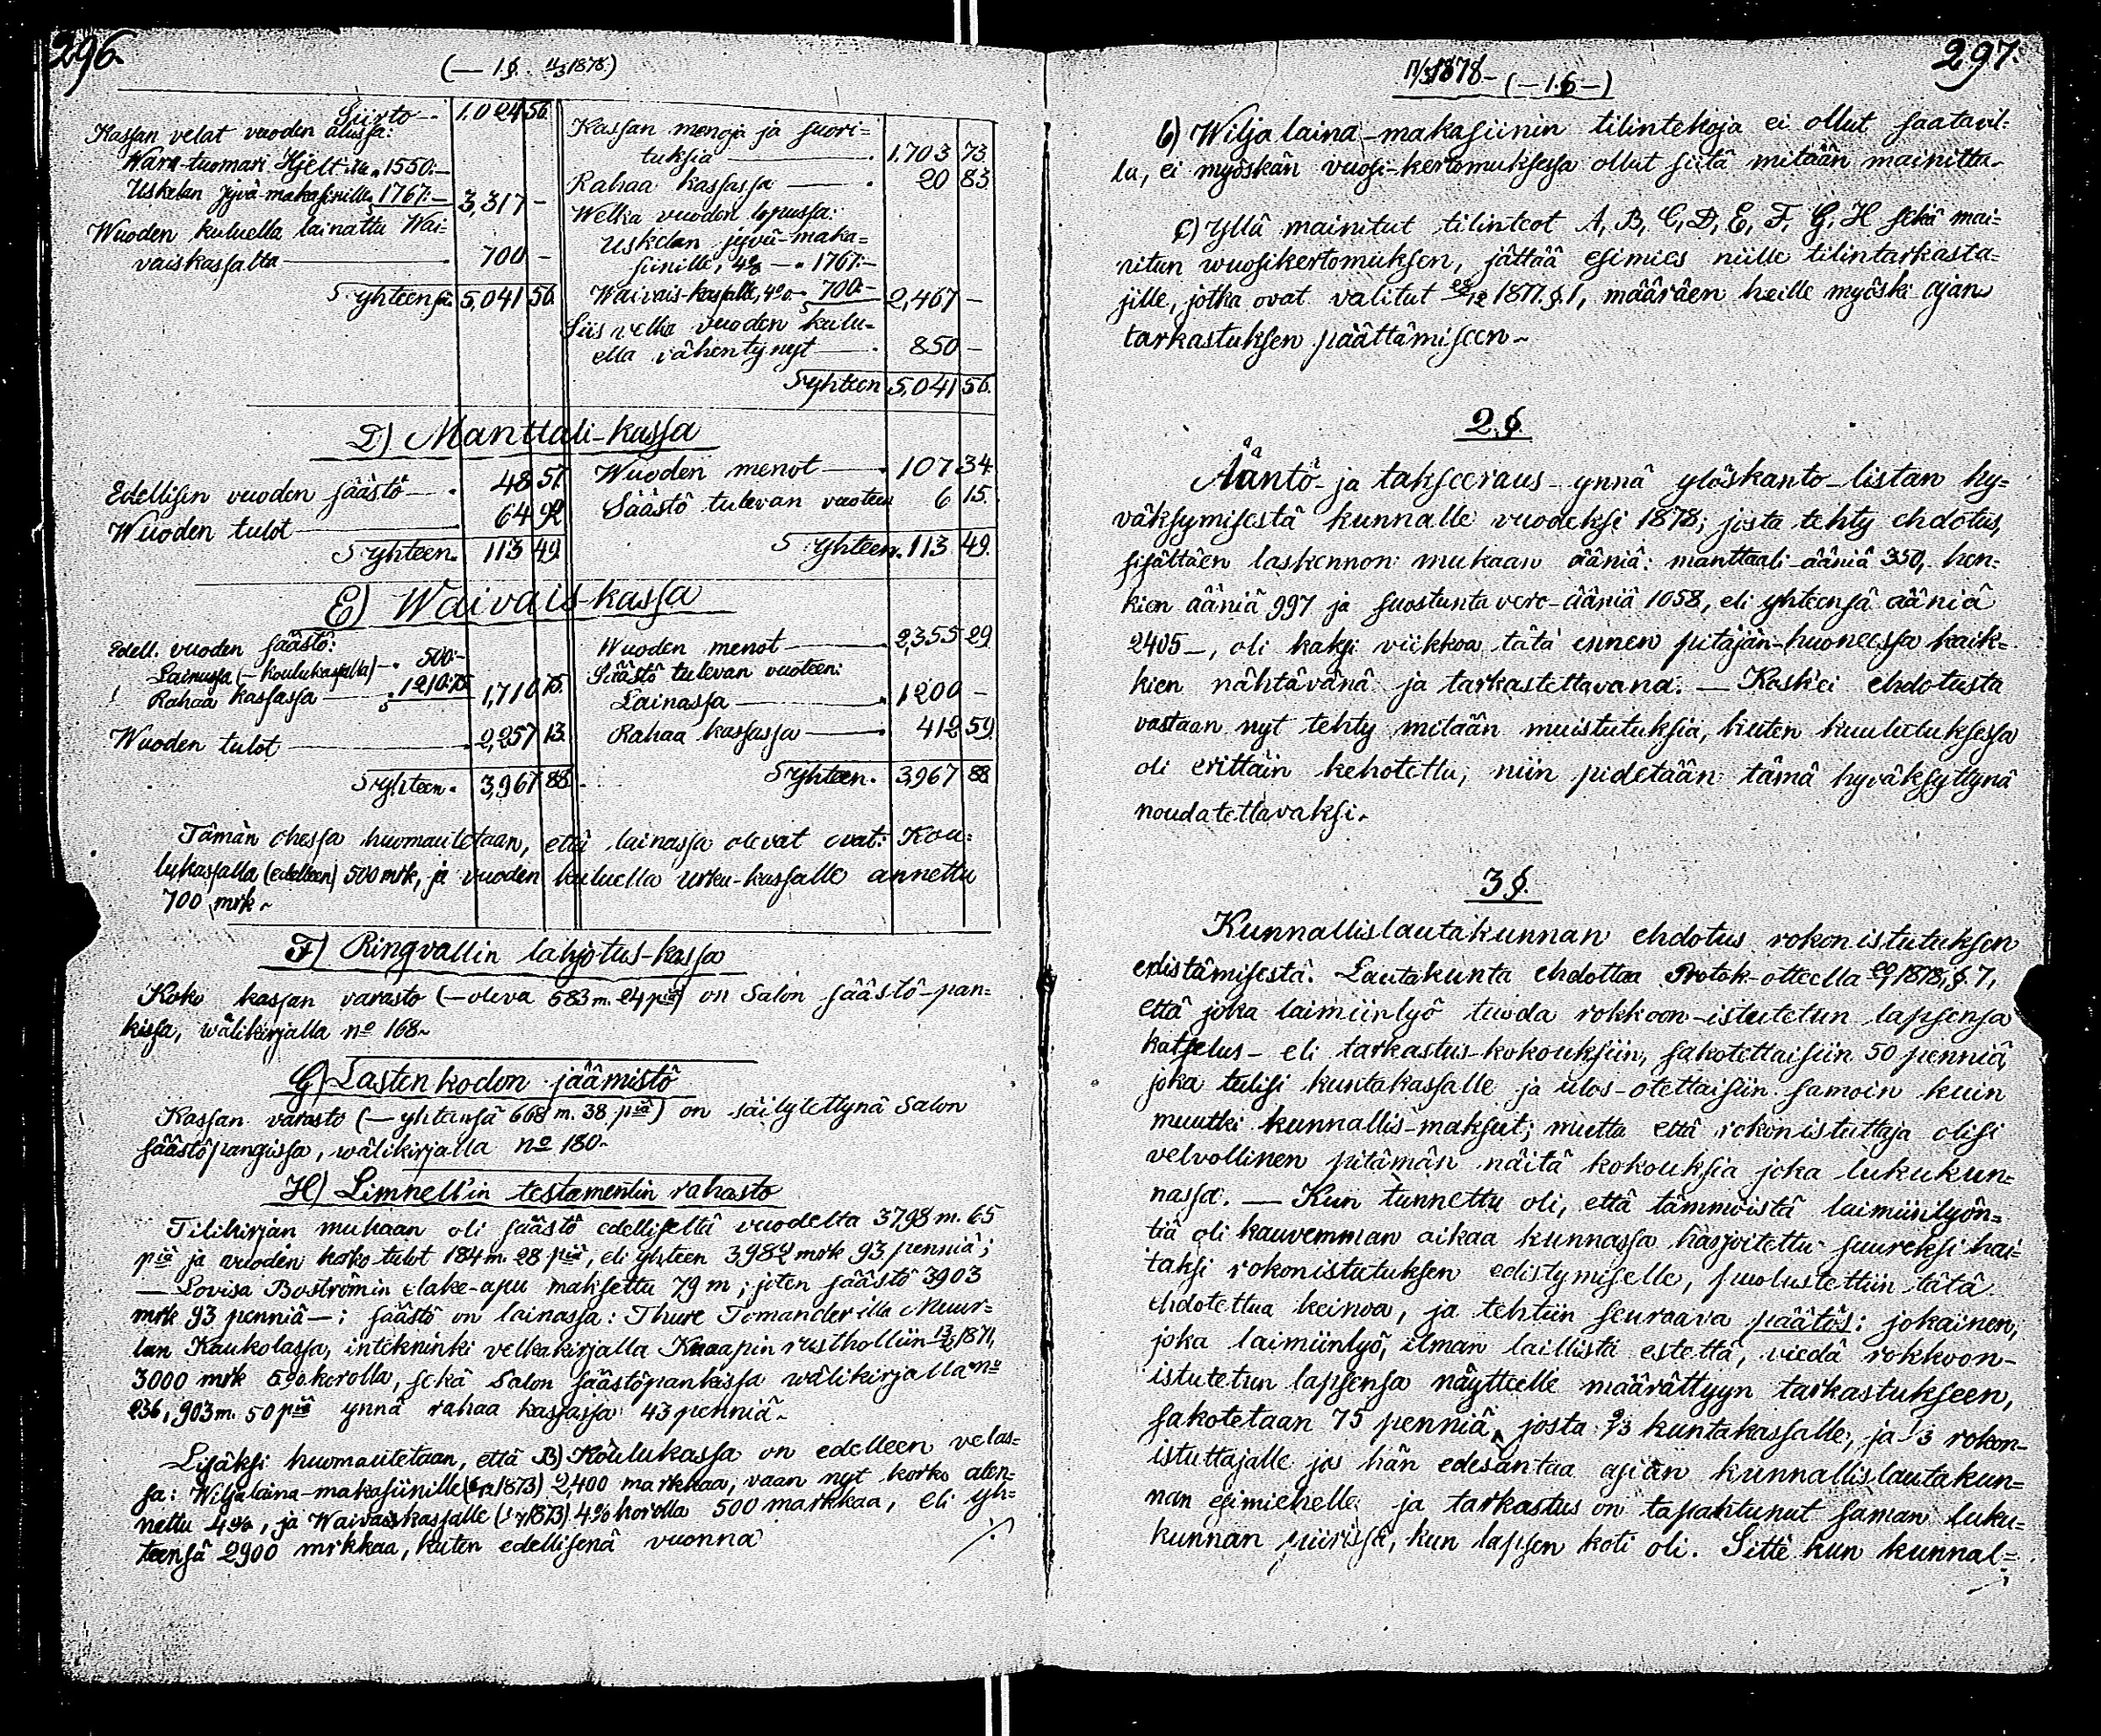 296.
(— 1 §. 11/3 1878.)
Siirto —. 1.024 56.
Kassan velat vuoden alussa:
Wara-tuomari Hjelt'ille „ 1550:—
Uskelan jyvä-makasinille „ 1767:— 3,317 —
Wuoden kuluella lainattu Wai=
vaiskassalta —. 700 —
Syhteensä. 5,041 56.
Kassan menoja ja suori=
tuksia —. 1.703 73.
Rahaa kassassa —. 20 83
Welka vuoden lopussa:
Uskelan jyvä-maka=
siinille, 4% —„ 1767:—
Waivais-kassalle, 4% — 700:— 2,467 —
Siis velka vuoden kulu=
ella vähentynyt —. 850 —
Syhteen 5,041 56.
D) Manttali-kassa
Edellisen vuoden säästö —. 48 57.
Wuoden tulot — 64 92
Syhteen. 113 49.
Wuoden menot —. 107 34.
Säästö tulevan vuoteen 6 15.
Syhteen. 113 49.
E) Waivais-kassa
Edell. vuoden säästö:
Lainassa (— koulukassalla) —. 500:—
Rahaa kassassa — 1210:75 1,710 75.
Wuoden tulot —. 2,257 13.
Syhteen. 3,967 88.
Wuoden menot —. 2,355 29.
Säästö tulevan vuoteen:
Lainassa —. 1200 —
Rahaa kassassa —. 412 59.
Syhteen. 3,967 88
Tämän ohessa huomautetaan, että lainassa olevat ovat: Kou=
lukassalla (edelleen) 500 mrk, ja vuoden kuluella urku-kassalle annettu
700 mrk.
F) Ringvallin lahjotus-kassa
Koko kassan varasto (— oleva 683 m. 24 piä) on Salon säästö-pan=
kissa, wälikirjalla no 168.
G) Lasten kodon jäämistö
Kassan varasto (— yhteensä 668 m. 38 piä) on säilytettynä Salon
säästöpangissa, wälikirjalla no 180.
H) Limnell'in testamentin rahasto
Tilikirjan mukaan oli säästö edelliseltä vuodelta 3798 m. 65
piä ja vuoden korko tulot 184 m. 28 piä, eli yhteen 3982 mrk 93 penniä;
— Lovisa Boströmin elake-apu maksettu 79 m; joten säästö 3903
mrk 93 penniä —; säästö on lainassa: Thure Tomander'illa Muur=
lan Kaukolassa, intekninki velkakirjalla Knaapin rustholliin 1871,
3000 mrk 5% korolla, sekä Salon säästöpankissa wälikirjalla no
236, 903 m. 50 piä ynnä rahaa kassassa 43 penniä.
Lisäksi huomautetaan, että B) Koulukassa on edelleen velas=
sa: Wiljalaina-makasiinille 2,400 markkaa, vaan nyt korko alen=
nettu 4%, ja Waivaiskassalle 4% korolla 500 markkaa, eli yh=
teensä 2900 mrkkaa, kuten edellisenä vuonna
./.
297.
11/3 1878 — (— 1 §. —)
b) Wilja laina-makasiinin tilintekoja ei ollut saatavil=
la, ei myöskän vuosi-kertomuksessa ollut siitä mitään mainitta.
c) Yllä mainitut tilinteot A, B, C, D, E, F, G, H sekä mai=
nitun wuosikertomuksen, jättää esimies niille tilintarkasta=
jille, jotka ovat valitut 28/12 1877. § 1, määräen heille myöski ajan
tarkastuksen päättämiseen.
2 §.
Ääntö- ja takseeraus- ynnä ylöskanto-listan hy=
väksymisestä kunnalle vuodeksi 1878; josta tehty ehdotus,
sisältäen laskennon mukaan ääniä: manttaali-ääniä 350, hen=
kien ääniä 997 ja suostunta vero-ääniä 1058, eli yhteensä ääniä
2405 —, oli kaksi viikkoa tätä ennen pitäjän-huoneessa kaik=
kien nähtävänä ja tarkastettavana. — Kosk'ei ehdotusta
vastaan nyt tehty mitään muistutuksia, kuten kuulutuksessa
oli erittäin kehotettu, niin pidetään tämä hyväksyttynä
noudatettavaksi.
3 §.
Kunnallislautakunnan ehdotus rokonistutuksen
edistämisestä. Lautakunta ehdottaa Protok.-otteella 1878, § 7,
että joka laimiinlyö tuoda rokkoon-istutetun lapsensa
katselus- eli tarkastus-kokouksiin, sakotettaisiin 50 penniä,
joka tulisi kuntakassalle ja ulos-otettaisiin samoin kuin
muutki kunnallis-maksut; mutta että rokonistuttaja olisi
velvollinen pitämän näitä kokouksia joka lukukun=
nassa. — Kun tunnettu oli, että tämmöistä laimiinlyön=
tiä oli kauvemman aikaa kunnassa harjoitettu suureksi hai=
taksi rokonistutuksen edistymiselle, puolustettiin tätä
ehdotettua keinoa, ja tehtiin seuraava päätös: jokainen,
joka laimiinlyö, ilman laillista estettä, viedä rokkoon-
istutetun lapsensa näytteelle määrättyyn tarkastukseen,
sakotetaan 75 penniä, josta 2/3 kuntakassalle, ja 1/3 rokon-
istuttajalle jos hän edesantaa asian kunnallislautakun=
nan esimiehelle ja tarkastus on tapahtunut saman luku=
kunnan piirissä, kun lapsen koti oli. Sitte kun kunnal=
./.